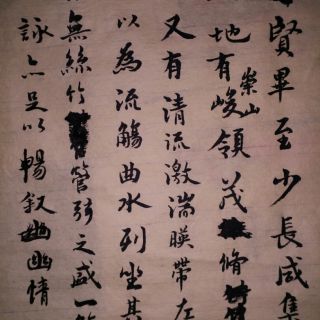 賢畢至少長咸集
地有崇山峻領茂脩
又有清流激湍暎帶左
以為流觴曲水列坐其
無絲竹管弦之盛一
詠亦足以暢叙幽情